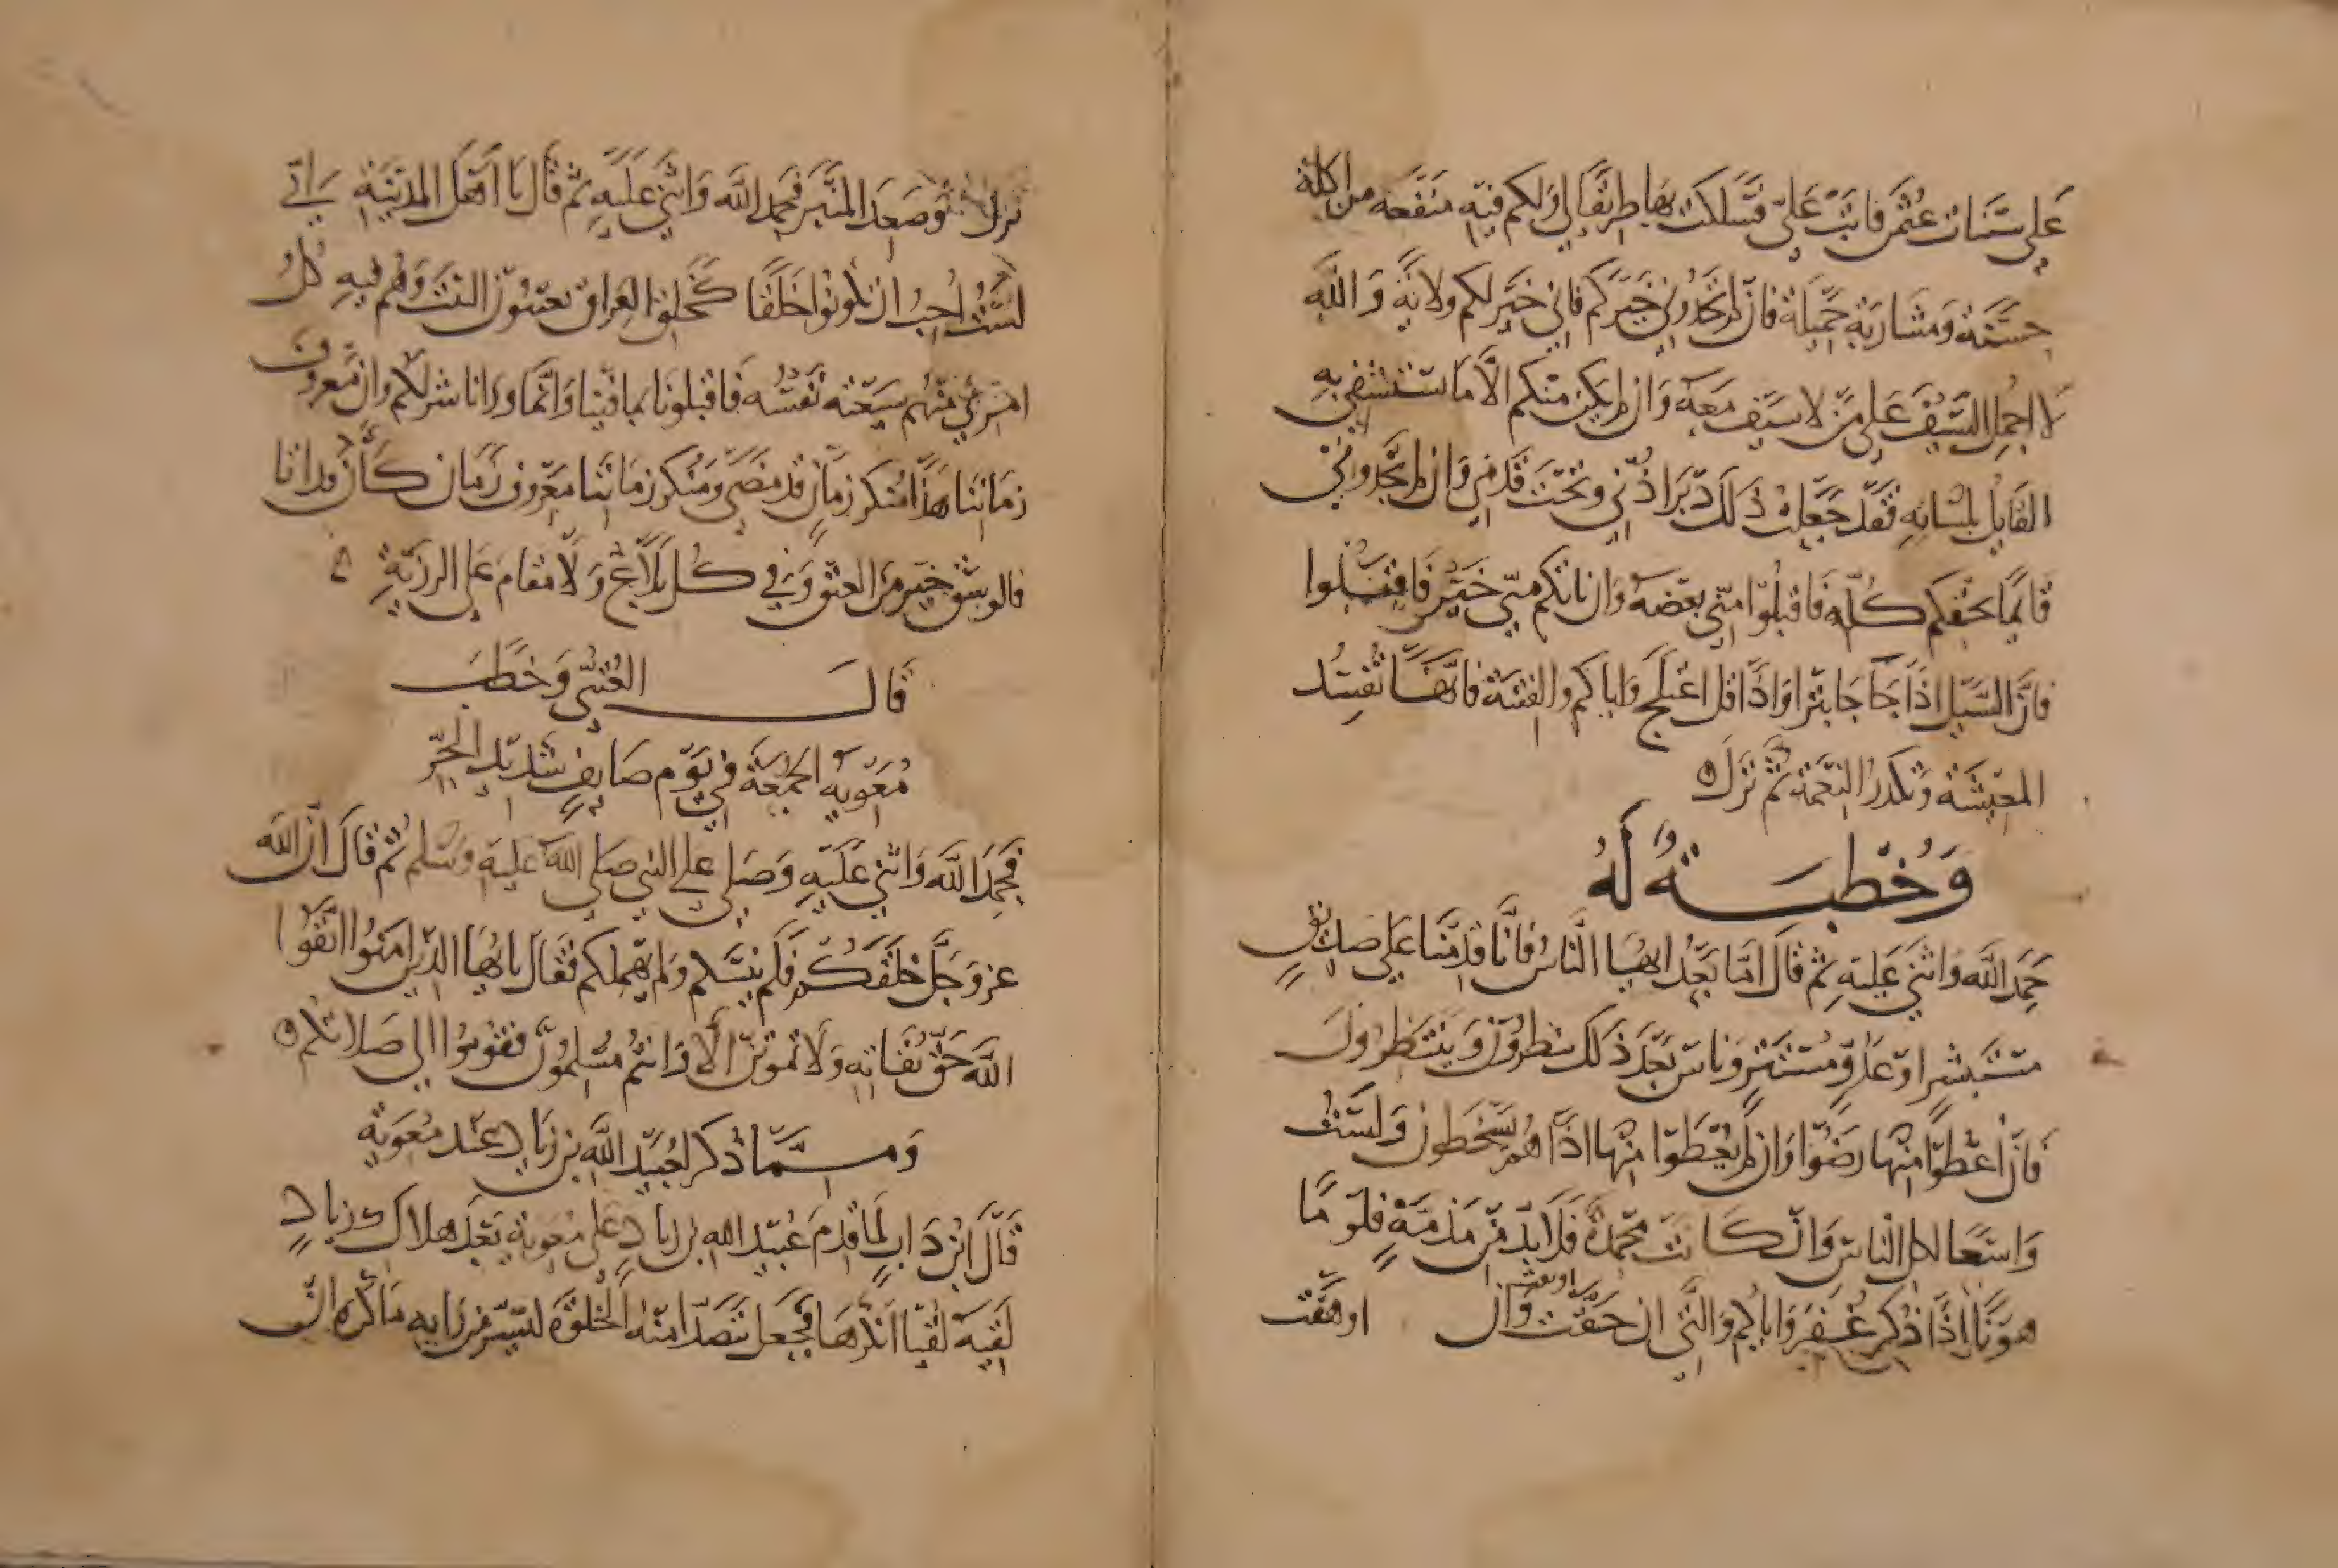 على سنيات عثمن فابت علي فسلكت بها طريقا لي ولكم فيه منفعه مواكلة
حسنة ومشاربة جميلة فان لم تجدوني خيركم فاني خير لكم ولاية والله
لا احمل السيف على من لا سيف معه وان لم يكن منكم الا ما يستشفي به
القايل بلسانه فقد جعلت ذلك دبر اذني وتحت قدمي وان لم تجدوني
قايما بحقكم كله فاقبلوا مني بعضه وان اتاكم مني خير فاقبلوا
فان السيل اذا جا جا بثرا واذا قل اغلج واياكم والفتنة فانها تفسد
المعيشة وتكدر النعمة ثم نزل ه
وخطبة له
حمد الله واثنى عليه ثم قال اما بعد ايها الناس فانا قدمنا على صديق
مستبشر او عدو مستتر وناس بعد ذلك ينظرون وينتظرون
فان اعطوا منها رضوا وان لم يعطوا منها اذا هم يسخطون ولست
واسعا لكل الناس وان كانت محمدة فلا بد من مذمة فلوما
هونا اذا ذكر غفر واياكم والتي ان حقت وان اوهقت
نزل وصعد المنبر فحمد الله واثنى عليه ثم قال يا اهل المدينة اني
لست احب ان تكونوا خلقا كخلق العراق يعيبون الشي وهم فيه كل
امرئ منهم شيعته نفسه فاقبلونا بما فينا وانما ورانا شر لكم وان معروف
زماننا هذا منكر زمان قد مضى ومنكر زماننا معروف زمان كان قد اتانا
فالوسق خير من العتق وفي كل بلاغ ولا مقام على الرزية ه
قال العتبي وخطب
معوية الجمعة في يوم صايف شديد الحر
فحمد الله واثنى عليه وصلى على النبي صلى الله عليه وسلم ثم قال ان الله
عز وجل خلقكم فلم ينسكم ولم يهملكم فقال يا ايها الذين امنوا اتقوا
الله حق تقاته ولا تموتن الا وانتم مسلمون فقوموا الى صلاتكم ه
ومما ذكر لعبيد الله بن زياد عند معوية
قال ابن داب لما قدم عبيد الله بن زياد على معوية بعد هلاك زياد
لقيه لقيا انكرها فجعل يتصدا منه الخلوة ليسبر من رايه ما كره ان